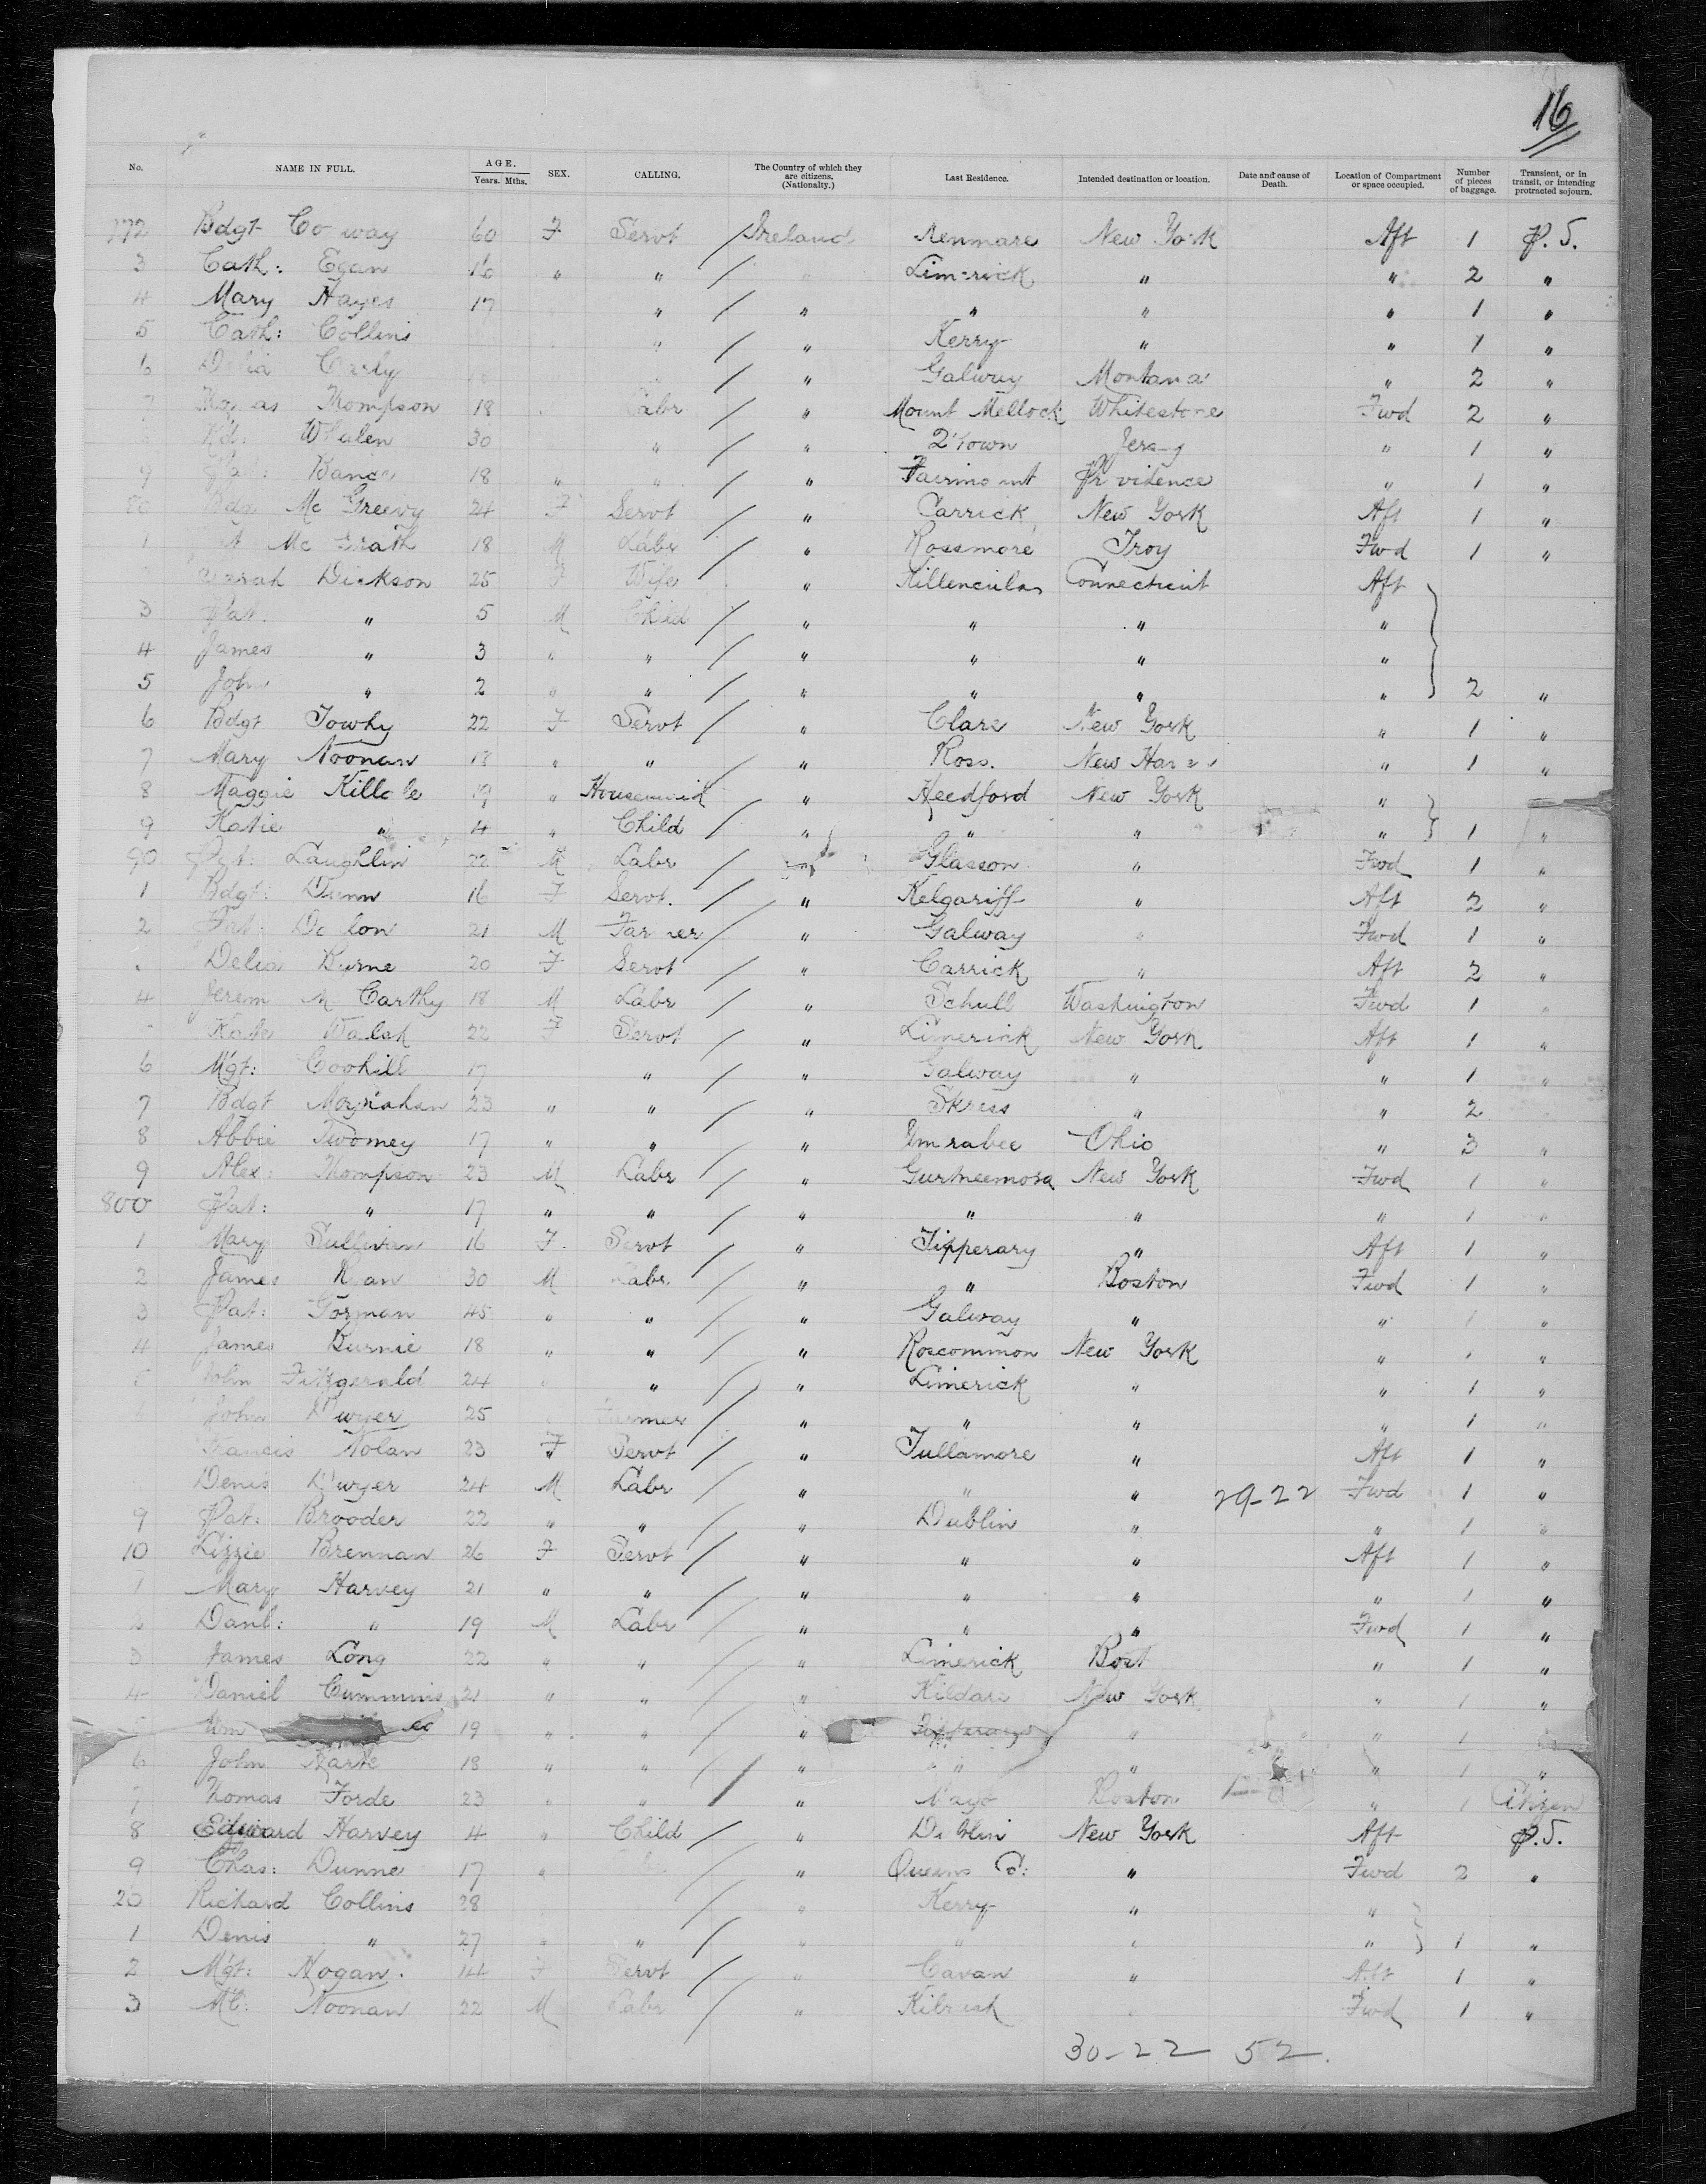 16
No. NAME IN FULL. AGE. Years. Mths. SEX. CALLING. The Country of which they are citizens. (Nationalty.) Last Residence. Intended destination or location. Date and cause of Death. Location of Compartment or space occupied. Number of pieces of baggage. Transient, or in transit, or intending protracted sojourn.
772 Bdgt Co way 60 F Servt Ireland Kenmare New York Aft 1 P.S.
3 Cath: Egan 16 " " " Limerick " " 2 "
4 Mary Hayes 17 " " " " " 1 "
5 Cath: Collins " " Kerry " " 1 "
6 Delia " Galway Montana " 2 "
7 Thomas Thompson 18 Labr " Mount Mellock Whitestone Fwd 2 "
Rd: Whalen 30 " " Q'Town Jersey " 1 "
9 Pat: 18 " " " Fairmo unt Pr vidence " 1 "
80 Bdgt Mc Greevy 24 F Servt " Carrick New York Aft 1 "
1 Mc Grath 18 M Labr " Rossmore Troy Fwd 1 "
Sarah Dickson 25 F Wife " Connecticut Aft
3 Pat. " 5 M Child " " " "
4 James " 3 " " " " " "
5 John " 2 " " " " " " 2 "
6 Bdgt Towhy 22 F Servt " Clare New York " 1 "
7 Mary Noonan 18 " " " Ross. New " 1 "
8 Maggie 19 " Housemaid " Heedford New York "
9 Katie " 4 " Child " " " " 1 "
90 Laughlin 22 M Labr Glasson " Fwd 1 "
1 Bdgt: Dunn 16 F Servt. " Kelgariff " Aft 2 "
2 Pat: 21 M Farmer " Galway " Fwd 1 "
Delia Burne 20 F Servt " Carrick " Aft 2 "
4 Jerem Mc Carthy 18 M Labr " Schull Washington Fwd 1 "
Kate Walsh 22 F Servt " Limerick New York Aft 1 "
6 Mgt: Coohill 17 " " Galway " " 1 "
7 Bdgt Moynahan 23 " " " Skress " " 2
8 Abbie Twomey 17 " " " Ohio " 3 "
9 Alex: Thompson 23 M Labr " Gurtneemora New York Fwd 1 "
800 Pat: " 17 " " " " " " 1 "
1 Mary Sullivan 16 F. Servt " Tipperary " Aft 1 "
2 James Ryan 30 M Labr " " Boston Fwd 1 "
3 Pat: Gorman 45 " " " Galway " " 1 "
4 James Burnie 18 " " " Roscommon New York " 1 "
5 John Fitzgerald 24 " " " Limerick " " 1 "
John Dwyer 25 Farmer " " " " 1 "
Francis Nolan 23 F Servt " Tullamore " Aft 1 "
Denis Dwyer 24 M Labr " " " 29-22 Fwd 1 "
9 Pat: Brooder 22 " " " Dublin " " 1 "
10 Lizzie Brennan 26 F Servt " " " Aft 1 "
1 Mary Harvey 21 " " " " " " 1 "
2 Danl: " 19 M Labr " " " Fwd 1 "
3 James Long 22 " " " Limerick Bost " 1 "
4 Daniel Cummins 21 " " " Kildare New York " 1 "
Wm 19 " " " Tipperary " " 1
6 John 18 " " " " " " 1 "
7 Thomas Forde 23 " " " Mayo Boston " 1 Citizen
8 Edward Harvey 4 " Child " Dublin New York Aft P.S.
9 Chas: Dunne 17 " " Queens Co: " Fwd 2 "
20 Richard Collins 28 " Kerry " "
1 Denis " 27 " " " " " " 1 "
2 Mgt: Hogan. 14 F Servt " Cavan " Aft 1 "
3 Ml: Noonan 22 M Labr " Kilrush Fwd 1 "
30-22 52.